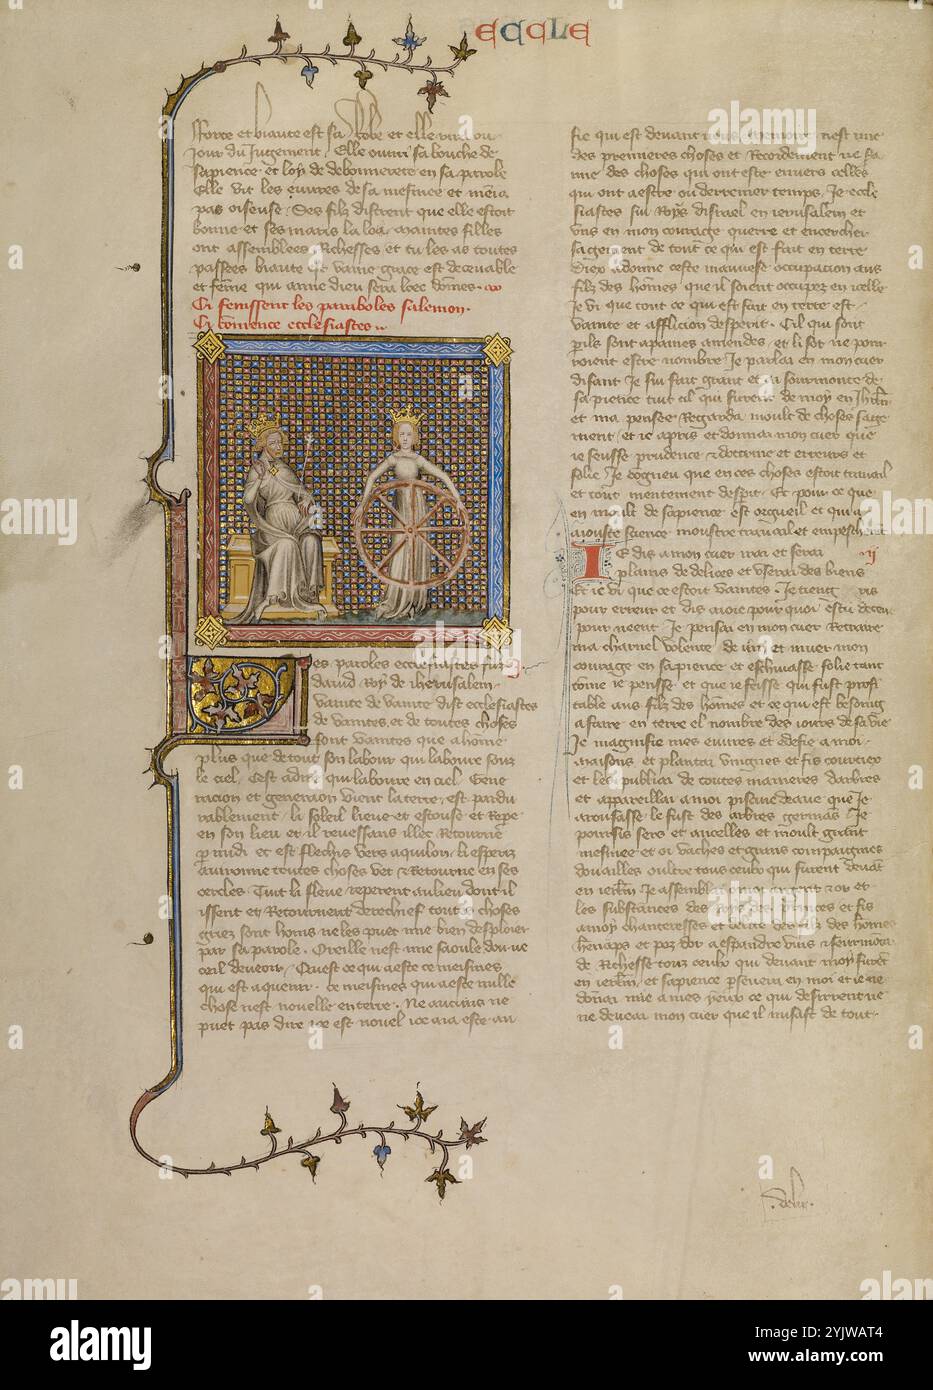 ECCLE
Force et biaute est sa robe et elle rira ou
jour du jugement. Elle ouvri sa bouche de
sapience et loy de debonnerete en sa parole
Elle vit les euvres de sa mesniee et menia
pas oiseuse. Ses filz distrent que elle estoit
bonne et ses maris la loa. Maintes filles
ont assemblees Richesses et tu les as toutes
passees biaute et vaine grace est deceuable
et feme qui aime dieu sera loee
Ci fenissent les paraboles salemon.
Ci comence ecclesiastes
es paroles ecclesiastes filz
david Roy de iherusalem.
vanite de vanite dist ecclesiastes
de vanites, et de toutes choses
sont vanites que a home
plus que de tout son labour qui laboure souz
le ciel, Cest adire qui laboure en ciel Gene
racion et generaion vient la terre, est pardu
rablement. li soleil lieue et escouse et Repe
en son lieu et il renessans illec Retourne
p midi et est flechis vers aquilon. li esperiz
avironne toutes choses vet et Retourne en ses
cercles. Tuit li fleuve reperent au lieu dont il
issent et Retournent derechief toutes choses
griez sont homs ne les puet mie bien desploier
par sa parole. Oreille nest mie saoule don ne
oeil de veoir. Quest ce qui a este ce meismes
qui est a avenir. ce meismes qui a este nulle
chose nest novelle en terre. Ne aucuns ne
puet pas dire ice est novel ice a ia este au
ße qui est devant nous memoire nest mie
des premieres choses et Recordement ne sa
mie des choses qui ont este envers celles
qui ont a estre ou derrenier temps. Je eccle
siastes fui Roys disrael en ierusalem et
vins en mon courage querre et encerchier
sagement de tout ce qui est fait en terre
diex a donne ceste mauvese occupacion aus
filz des homes que il soient occupez en icelle
Je vi que tout ce qui est fait en terre est
vanite et afflicion desperit. Cil qui sont
pvls sont a paines amendes, et li sot ne pour
roient estre nombre Je parlai en mon cuer
disant Je sui fait grant et ai sourmonte de
sapience tuit cil qui furent de moy en Jhrlm
et ma pensee Regarda moult de choses sage
ment, et ie apris et donnai mon cuer que
ie seusse prudence et doctrine et erreurs et
folie Je cogneu que en ces choses estoit travail
et tout mentement despit. Et pour ce que
en moult de sapience est orgueil et qui a
iouste science moustre travail et empeschment
IE dis a mon cuer irai et serai ij
plains de delices et userai des biens
Et ie vi que ce estoit vanites. Je tieng ris
pour erreur et dis a ioie pour quoi es tu decen
pour neent. Je pensai en mon cuer Retraire
ma charnel volente de vin et muer mon
courage en sapience et eschivasse folie tant
come ie pensse et que ie feisse qui fust profi
table aus filz des homes et ce qui est besoing
a faire en terre el nombre des iours de sa vie
Je magnifie mes euvres et edefie a moi
maisons, et plantai vingnes et fis courtiex
et les publiai de toutes manieres darbres
et appareillai a moi piscine deaue que Je
arousasse le fust des arbres germans. Je
poursis sers et ancelles et moult grant
mesniee et oi vaches et grans compaignies
douailles oultre tous ceulx qui furent devat
en ierlm Je assemblai a moi argent et or et
les substances des roys des princes et fis
a moy chanteresses et delices des filz des homes
henaps et poz dor a espandre vins et seurmontai
de Richesse touz ceulx qui devant moy furet
en ierlm, et sapience persevera en moi et ie ne
donai mie a mes yeulx ce qui desirrent ne
ne deveai mon cuer que il nusast de tout.
alamy
2YJWAT4
a alamy
Image ID: 2YJWAT4
www.alamy.com